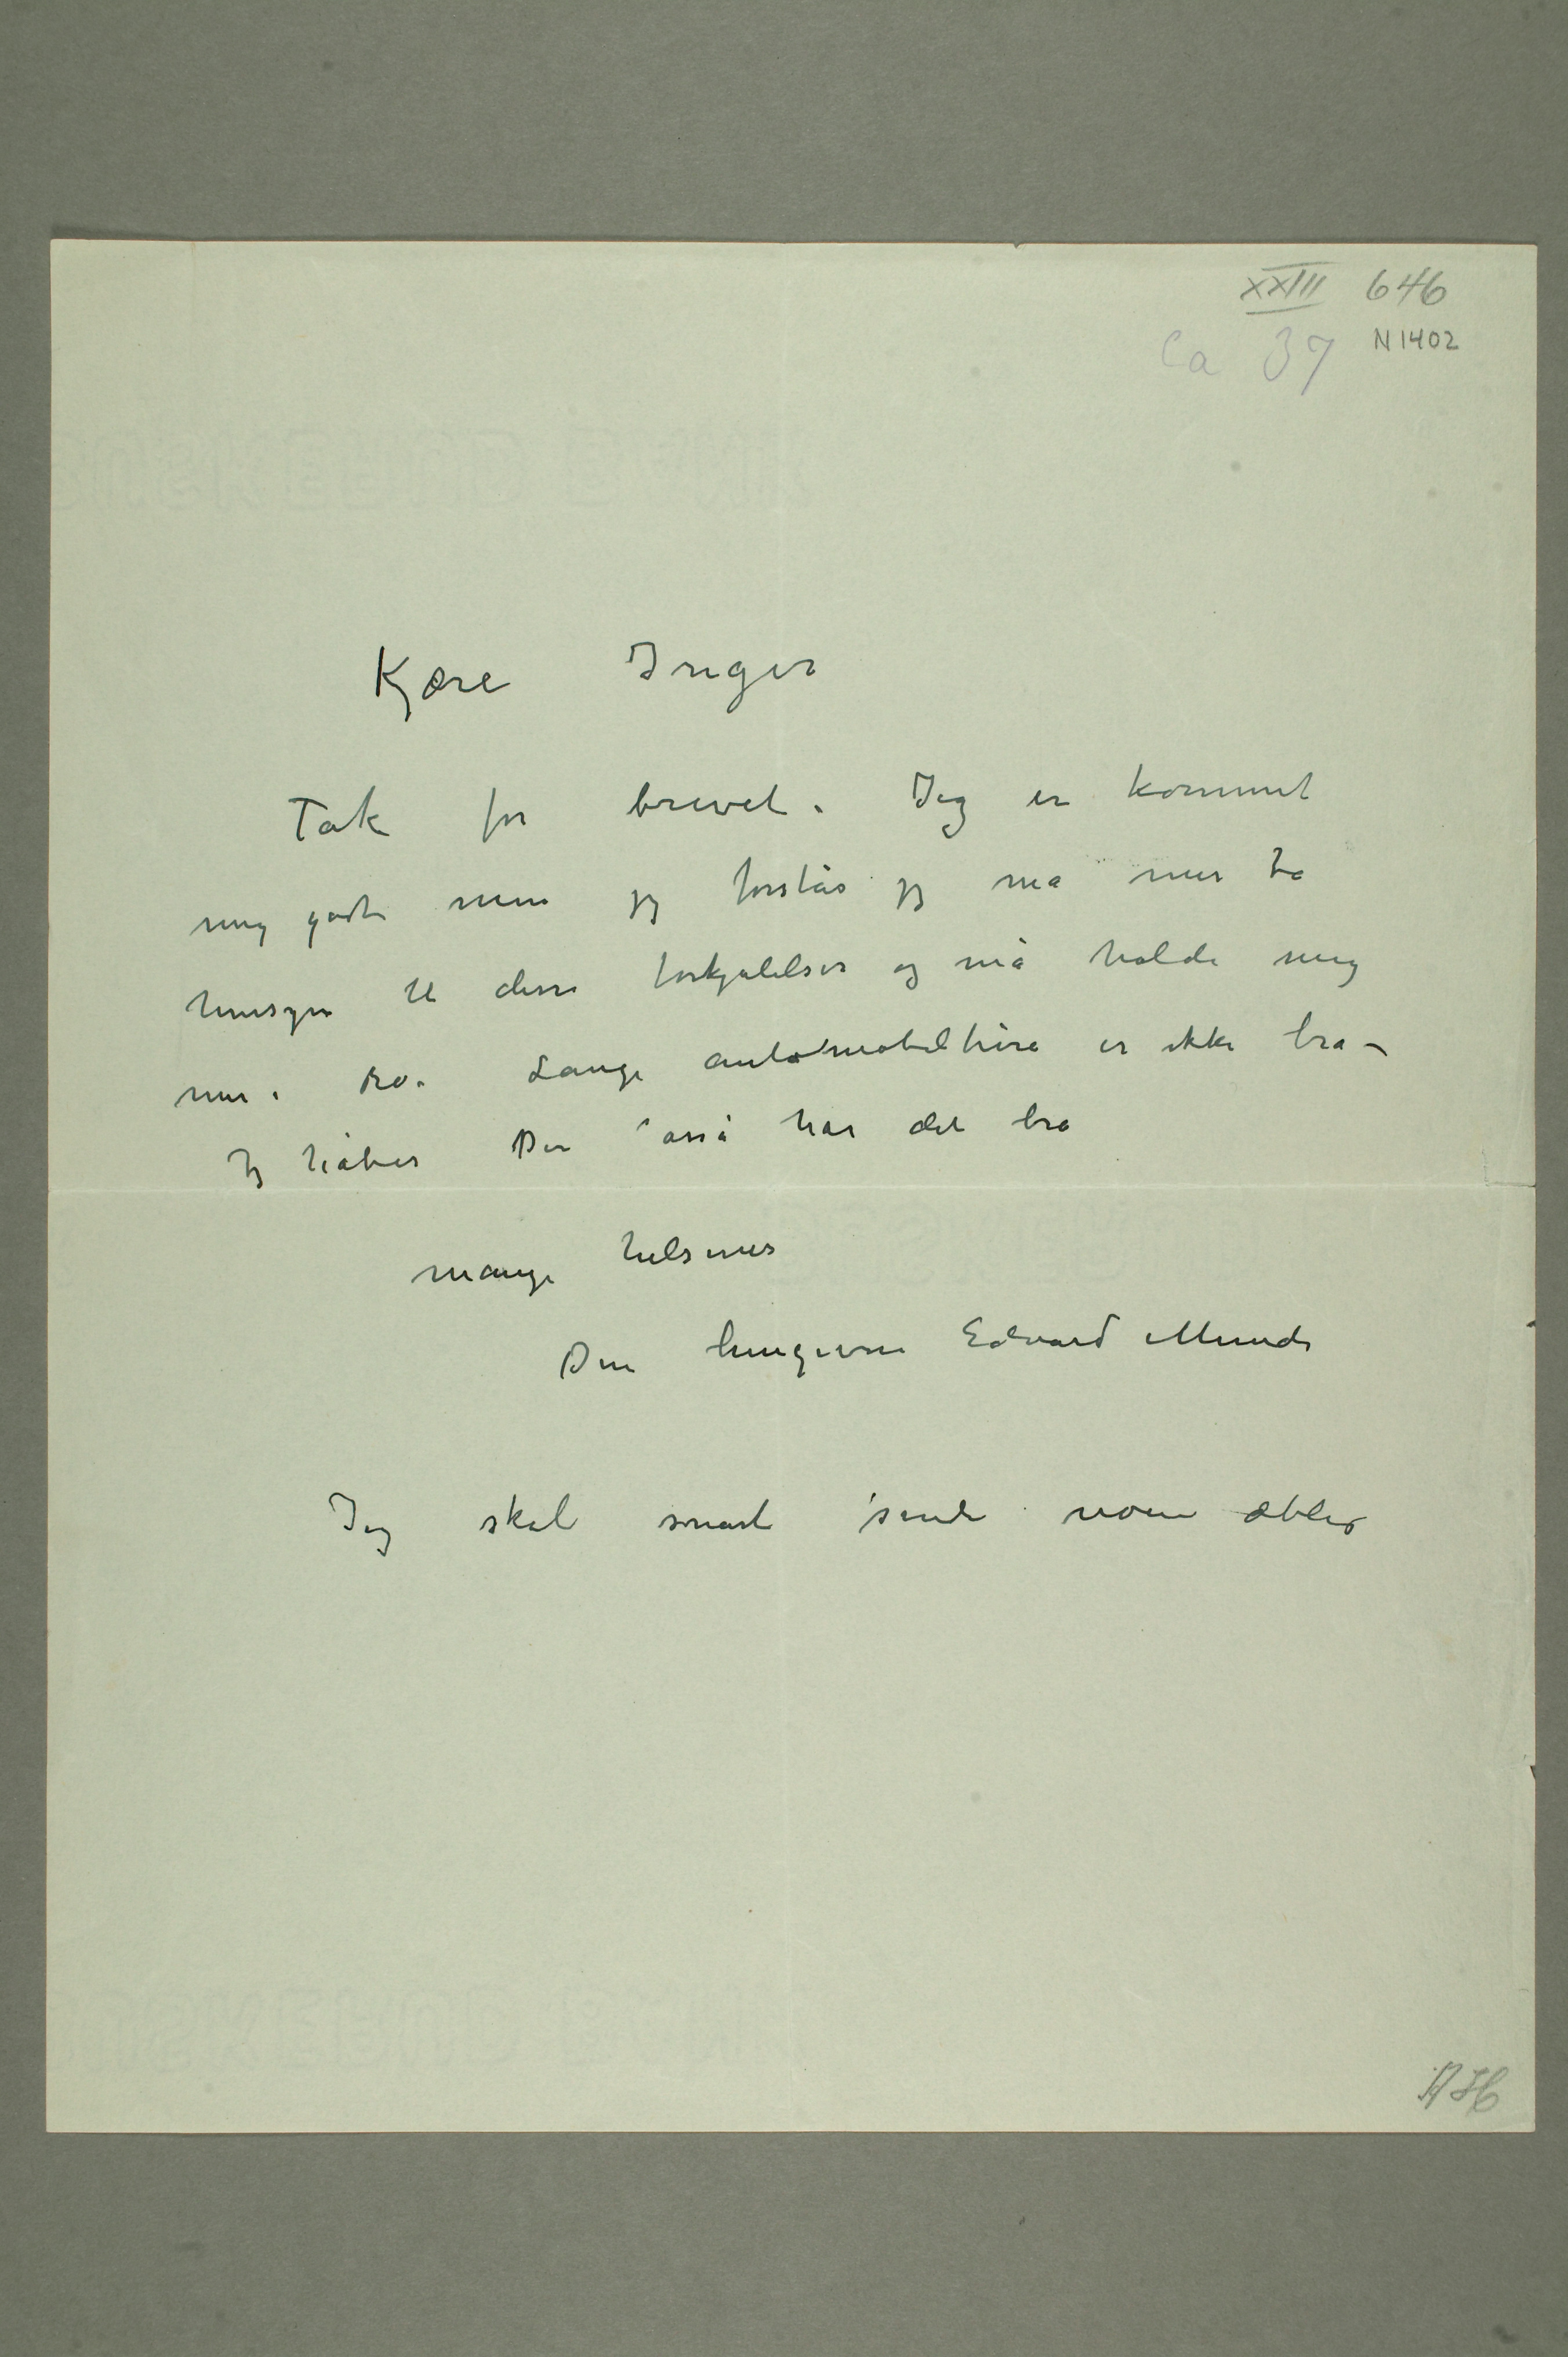 XXIII 646
Ca 37 N 1402
Kjære Inger
Tak for brevet. Jeg er kommet
mig godt men jeg forstår jeg må mer ta
hensyn til disse forkjølelser og må holde mig
mer i ro. Lange automobilture er ikke bra –
Jeg håber Du åsså har det bra
mange hilsener
Din hengivne Edvard Munch
Jeg skal snart sende noen æbler